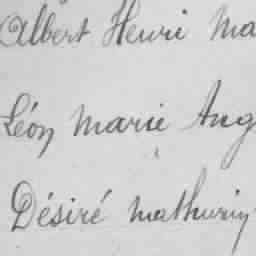 Albert Henri Ma
Léon Marie Aug
Désiré Mathurin